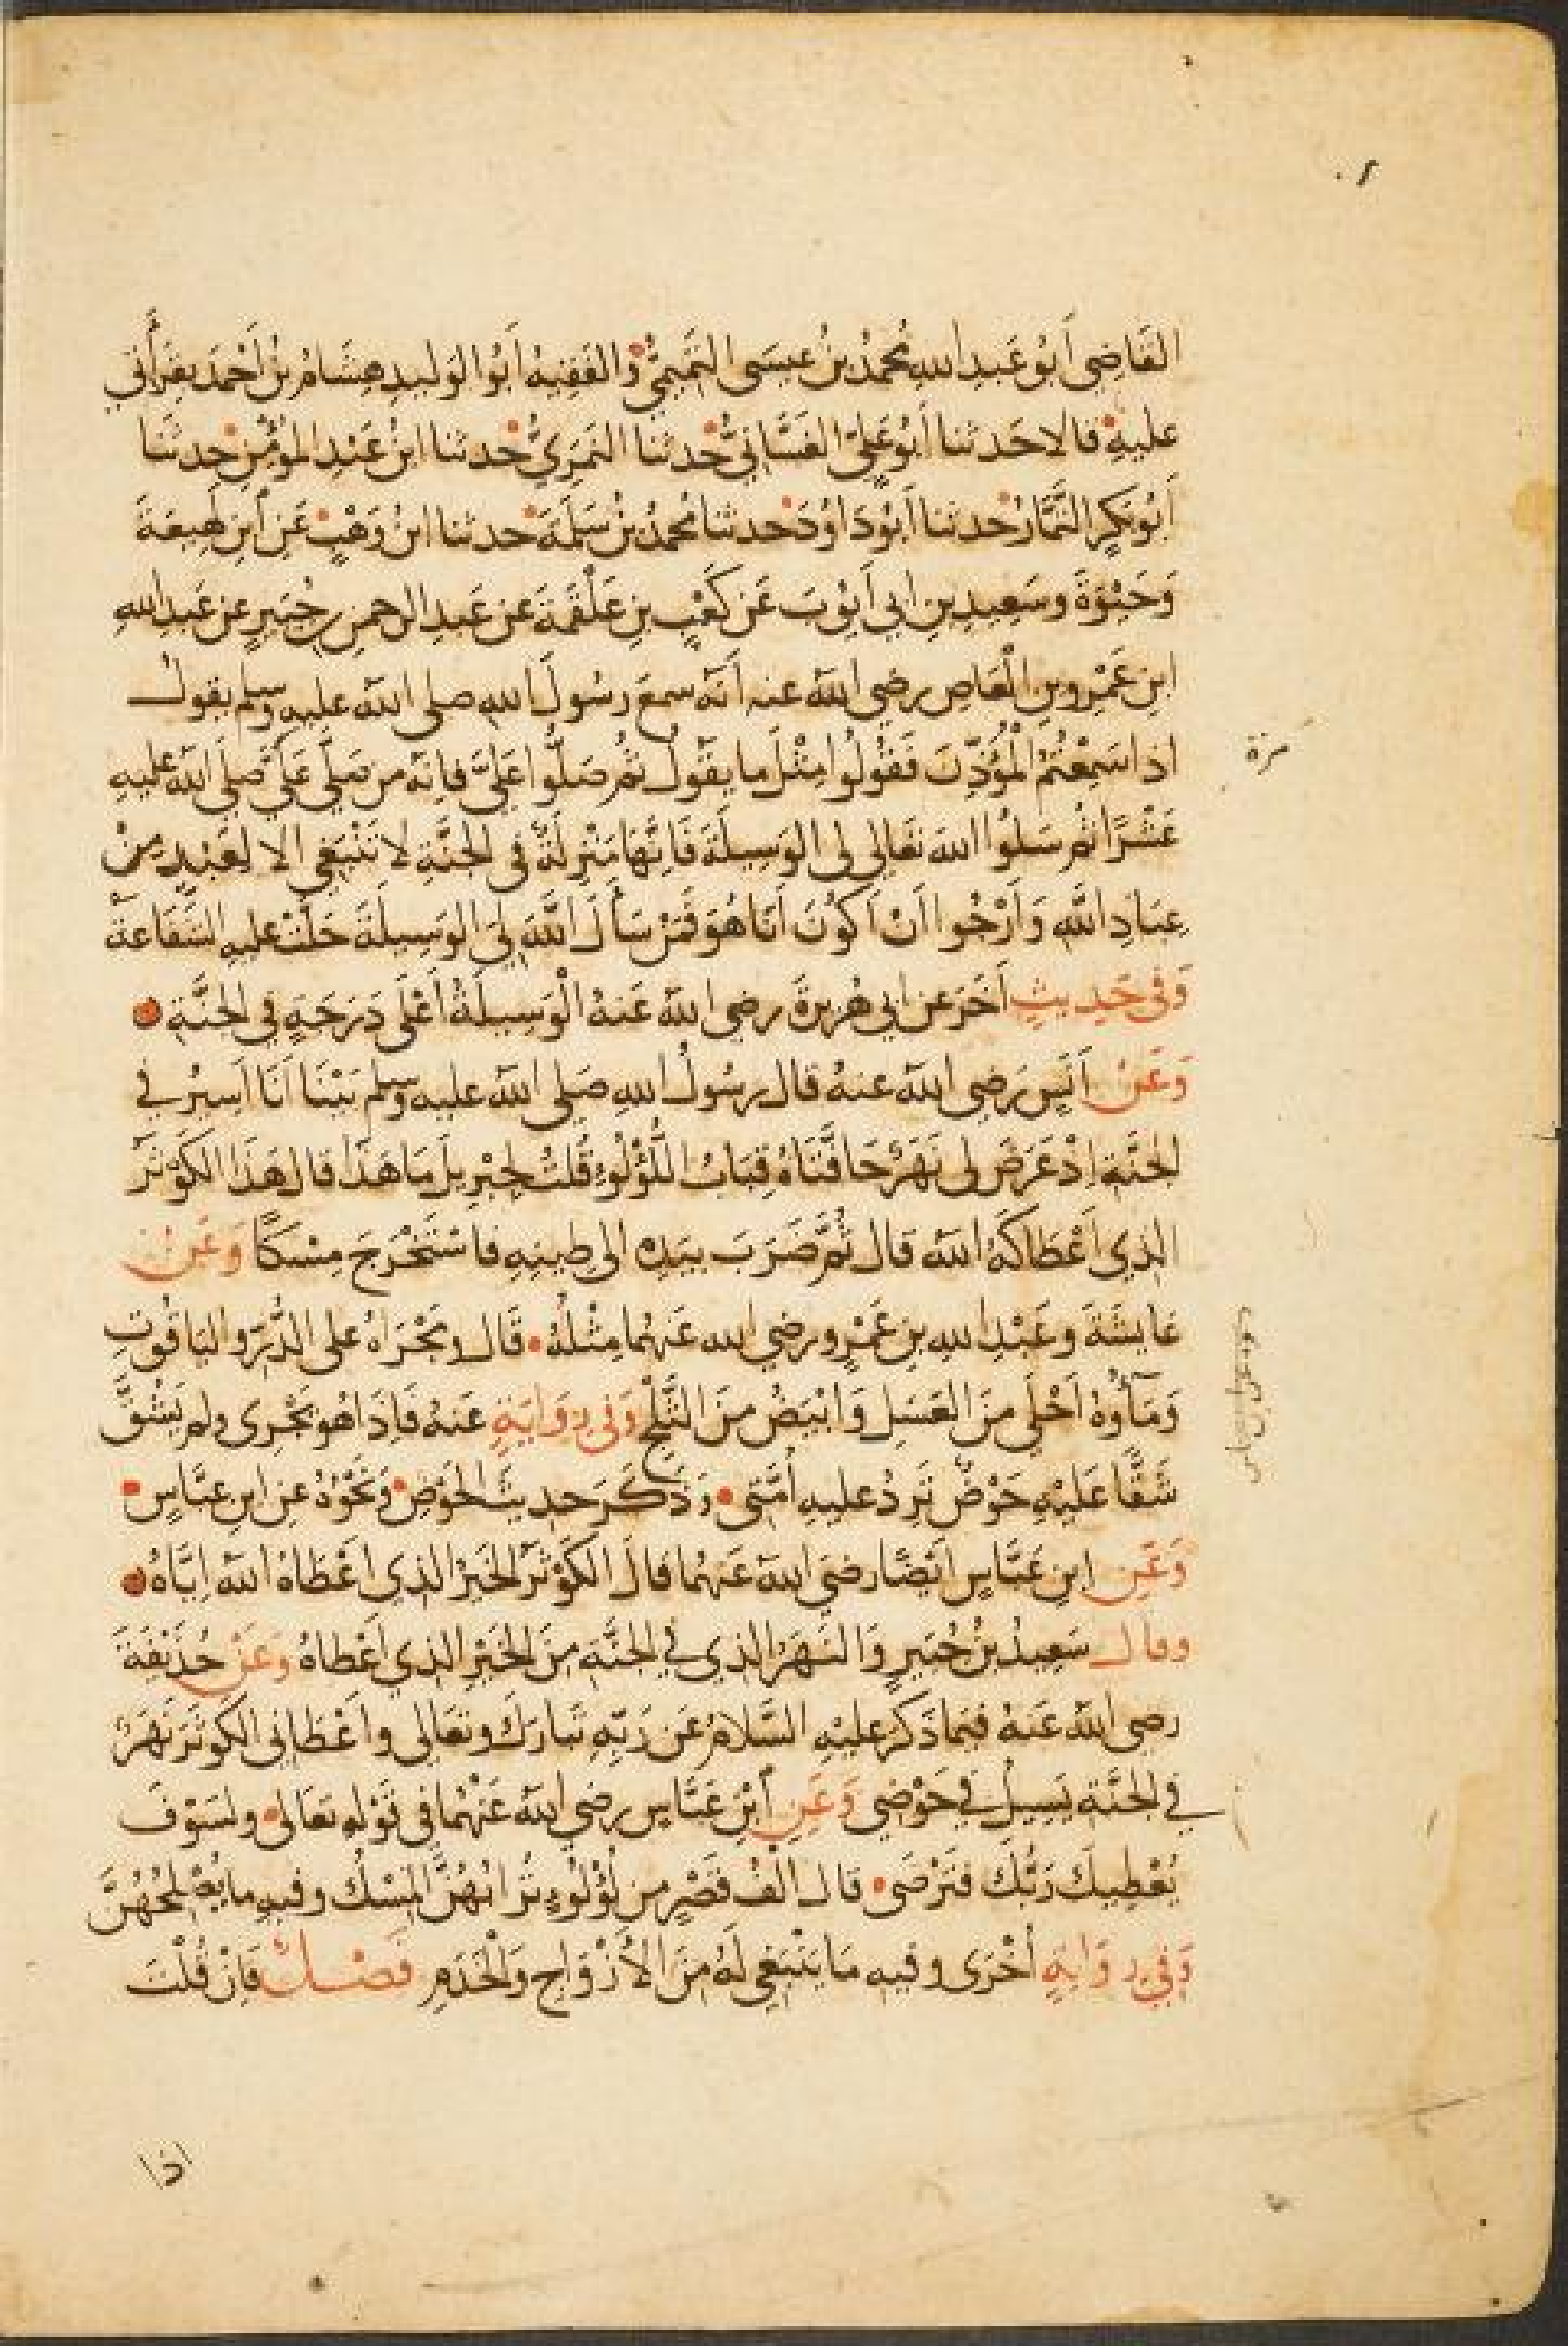 القَاضِي أَبُو عَبدِ اللهِ مُحَمَّدُ بنُ عِيسَى التَّمِيمِيُّ وَالفَقِيهُ أَبُو الوَلِيدِ هِشَامُ بنُ أَحْمَدَ بِقِرَأَتِي
عليهِ قالا حَدثنا أَبُو عَلِيٍّ الغَسَّانِيُّ حدثنا النَّمَرِيُّ حدثنا ابنُ عَبْدِ المُؤْمِنِ حدثنا
أَبُو بَكرٍ التَّمَّارُ حدثنا أَبُو دَاوُدَ حدثنا مُحمدُ بنُ سَلَمَةَ حدثنا ابنُ وَهْبٍ عَنِ ابنِ لَهِيعَةَ
وَحَيْوَةَ وسَعِيدِ بنِ ابي أَيُّوبَ عَن كَعْبٍ بنِ عَلْقَمَةَ عَن عَبدِ الرحمنِ بن جُبَيرٍ عن عَبدِ اللهِ
ابنِ عَمْرِو بنِ الْعَاصِ رضي اللهُ عنه أَنَّهُ سمعَ رسُولَ اللهِ صلى اللهُ عليهِ وسلم يقولُ
اذا سَمِعْتُمُ الْمُؤَذِّنَ فَقُولُوا مِثْلَ ما يقُولُ ثُمَّ صَلُّوا عَلَيَّ فإنَّهُ من صَلَّى عَلَيَّ صلَّى اللهُ عليهِ
مرة
عَشْرًا ثُمَّ سَلُوا اللهَ تعَالى لي الوَسِيلَةَ فَإنَّهَا مَنْزِلَةٌ في الجَنَّةِ لا تَنْبَغِي الا لِعَبْدٍ مِنْ
عِبَادِ اللهِ وَأَرْجُوا أَنْ أَكُونَ أَنَا هُوَ فَمَنْ سَأَلَ اللهَ لِيَ الوَسِيلَةَ حَلَّتْ عليهِ الشَّفَاعَةُ
وَفي حَدِيثٍ آخَرَ عن ابي هُرَيرةَ رضي اللهُ عَنهُ الْوَسِيلَةُ أَعْلَى دَرَجَةٍ في الجَنَّةِ
وَعَنْ أَنَسٍ رَضي اللهُ عنهُ قال رسُولُ اللهِ صَلى اللهُ عليهِ وسلم بَيْنَا أَنَا أَسِيرُ في
الجَنَّةِ إذْ عَرَضَ لي نَهَرٌ حَافَّتَاهُ قِبَابُ اللُّؤْلُوءِ قُلتُ لجِبْرِيلَ مَا هَذَا قال هَذَا الكَوْثَرُ
الذِي أَعْطَاكَهُ اللهُ قال ثُمَّ ضَرَبَ بيَدِهِ الى طِينِهِ فاسْتَخْرَجَ مِسْكًا وَعَنْ
عَايشَةَ وعَبْدِ اللهِ بنِ عَمْرٍو رضي الله عَنهُما مِثْلُهُ قَال ومَجْرَاهُ على الدُّرِّ واليَاقُوتِ
وَمَآؤُهُ أَحْلَى منَ العَسَلِ وَابْيَضُ منَ الثَّلْجِ وَفي رِوَايَةٍ عَنهُ فَاذَا هُوَ يَجْرِى ولم يُشَقَّ
شَقًّا عَلَيْهِ حَوْضٌ تَرِدُ عليهِ أُمَّتي وَذَكَرَ حدِيثَ الحَوْضِ وَنَحْوُهُ عنِ ابنِ عبَّاسٍ
وَعَنِ ابنِ عَبَّاسٍ ايْضًا رضيَ اللهُ عَنهُما قالَ الكَوْثَرُ الخَيرُ الذِي اعْطَاهُ اللهُ ايَّاهُ
وقال سَعِيدُ بنُ جُبَيرٍ وَالنَّهَرُ الذي في الجنَّةِ مِنَ الخَيْرِ الذِي اعْطاهُ وَعَنْ حُذَيْفَةَ
رضي اللهُ عَنهُ فِيمَا ذَكَرَ عليْهِ السَّلامُ عَن رَبِّهِ تَبارَكَ وتعَالى وأعْطَاني الكوثَرَ نَهَرٌ
في الجنَّةِ يَسِيلُ في حَوْضِي وَعَنِ ابْنِ عَبَّاسٍ رضي اللهُ عَنْهُما في قَوْلِهِ تعَالى ولسَوْفَ
يُعْطِيكَ رَبُّكَ فتَرْضَى قال أَلْفُ قَصْرٍ من لُؤْلُوءٍ تُرَابُهُنَّ المِسْكُ وفيهِ ما يُصْلِحُهُنَّ
وَفي رِوَايةٍ أُخْرَى وفيهِ مَا يَنْبَغِي لَهُ مِنَ الأَزْوَاجِ وَالْخَدَمِ فَصْلٌ فَإنْ قُلْتَ
اذا